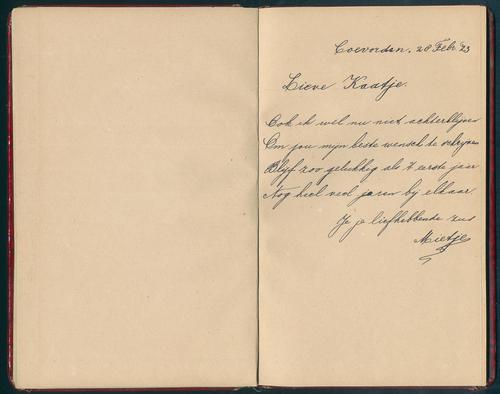 Coevorden, 28 Febr. 23
Lieve Kaatje.
Ook ik wil nu niet achterblijven
Om jou mijn beste wensch te schrijven
Blijf zoo gelukkig als 't eerste jaar
Nog heel veel jaren bij elkaar.
Je je liefhebbende zus
Mietje